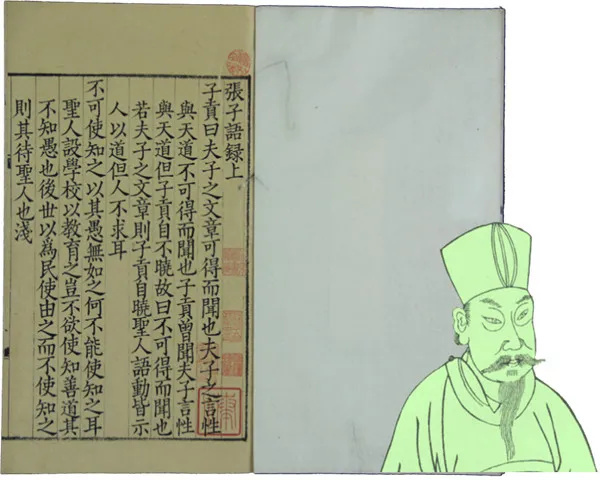 張子語録上
子貢曰夫子之文章可得而聞也夫子之言性
與天道不可得而聞也子貢曾聞夫子言性
與天道但子貢自不曉故曰不可得而聞也
若夫子之文章則子貢自曉聖人語動皆示
人以道但人不求耳
不可使知之以其愚無如之何不能使知之耳
聖人設學校以教育之豈不欲使知善道其
不知愚也後世以為民使由之而不使知之
則其待聖人也淺